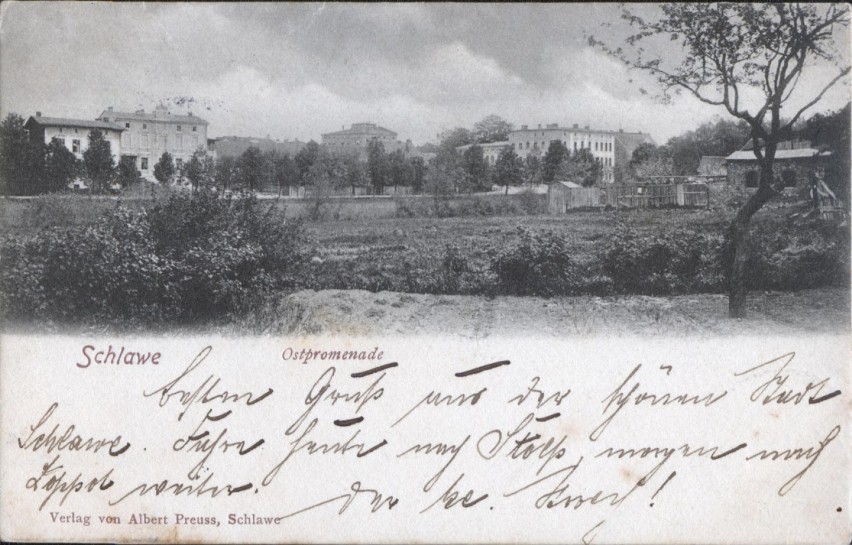 Schlawe Ostpromenade
besten Gruß aus der schönen Stadt
Schlawe. Fahre heute nach Stolp, morgen nach
Zoppot weiter. Der
Verlag von Albert Preuss, Schlawe